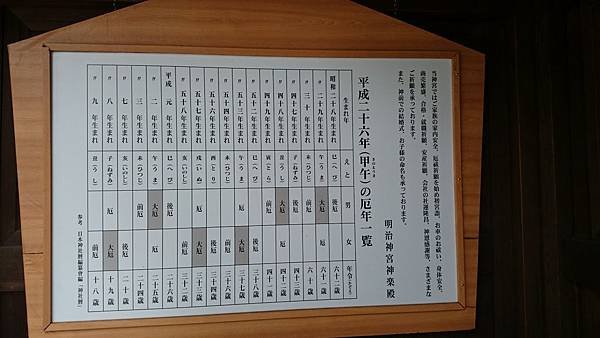 当神宮ではご家族の家内安全、厄祓祈願を始め初宮詣、お車のお祓い、身体安全、
商売繁盛、合格・就職祈願、安産祈願、会社の社運隆昌、神恩感謝等、さまざまな
ご祈願を承っております。
また、神前での結婚式、お子様の命名も承っております。
明治神宮神楽殿
平成二十六年(甲午)の厄年一覧
きのえうま
生まれ年 えと 男 女 年令(かぞえ)
昭和 二十八年生まれ 巳(へび) 後厄 六十二歳
〃 二十九年生まれ 午(うま) 大厄 厄 六十一歳
〃 三十年生まれ 未(ひつじ) 前厄 六十歳
〃 四十七年生まれ 子(ねずみ) 後厄 四十三歳
〃 四十八年生まれ 丑(うし) 大厄 厄 四十二歳
〃 四十九年生まれ 寅(とら) 前厄 四十一歳
〃 五十二年生まれ 巳(へび) 後厄 三十八歳
〃 五十三年生まれ 午(うま) 厄 大厄 三十七歳
〃 五十四年生まれ 未(ひつじ) 前厄 三十六歳
〃 五十六年生まれ 酉(とり) 後厄 三十四歳
〃 五十七年生まれ 戌(いぬ) 厄 大厄 三十三歳
〃 五十八年生まれ 亥(いのしし) 前厄 三十二歳
平成 元年生まれ 巳(へび) 後厄 二十六歳
〃 二年生まれ 午(うま) 大厄 厄 二十五歳
〃 三年生まれ 未(ひつじ) 前厄 二十四歳
〃 七年生まれ 亥(いのしし) 後厄 二十歳
〃 八年生まれ 子(ねずみ) 厄 大厄 十九歳
〃 九年生まれ 丑(うし) 前厄 十八歳
参考 日本神社暦編纂会編「神社暦」